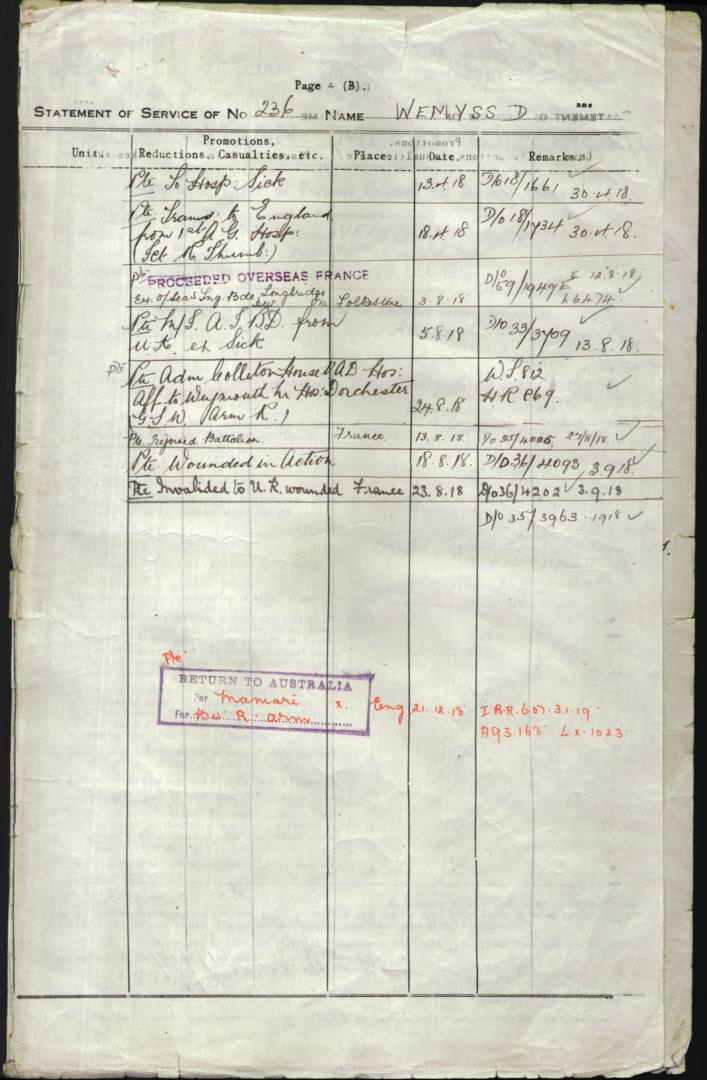 Page 4 (B).
STATEMENT OF SERVICE OF NO 236 NAME WEMYSS D
Unit. Promotions, Reductions, Casualties, etc. Place. Date. Remarks.
Pte To Hosp: Sick 13.4.18 D/O 18/1661 30.4.18.
Pte Trans: to England
from 1st A G. Hosp: 18.4.18 D/O 18/1734 30.4.18.
(Sct R Thumb.)
Pte PROCEEDED OVERSEAS FRANCE D/O 59/1949 12.8.18
Ex. O/Seas Tng. Bde Longbridge via Folkestone 3.8.18 L6474.
Pte M/I. A.I.B.D. from 5.8.18 D/O 33/3709
U.K. ex Sick 13.8.18.
Pte Adm Colliton House VAD Hos: W.S 812
Aff. to Weymouth Mr Hos: Dorchester H R 869.
G.S.W. (Arm R.) 24.8.18
Pte Rejoined Battalion. France. 13.8.18. D/o 35/4006 27/8/18.
Pte Wounded in Action 18.8.18. D/O 36/4093 3.9.18
Pte Invalided to U.K. wounded France 23.8.18 D/o 36/4202 3.9.18
D/o 35/3963.1918
Pte
RETURN TO AUSTRALIA
Per Mamari x. Eng 21.12.18 I.R.R. 607.31.19
For A93163 Lx.1023